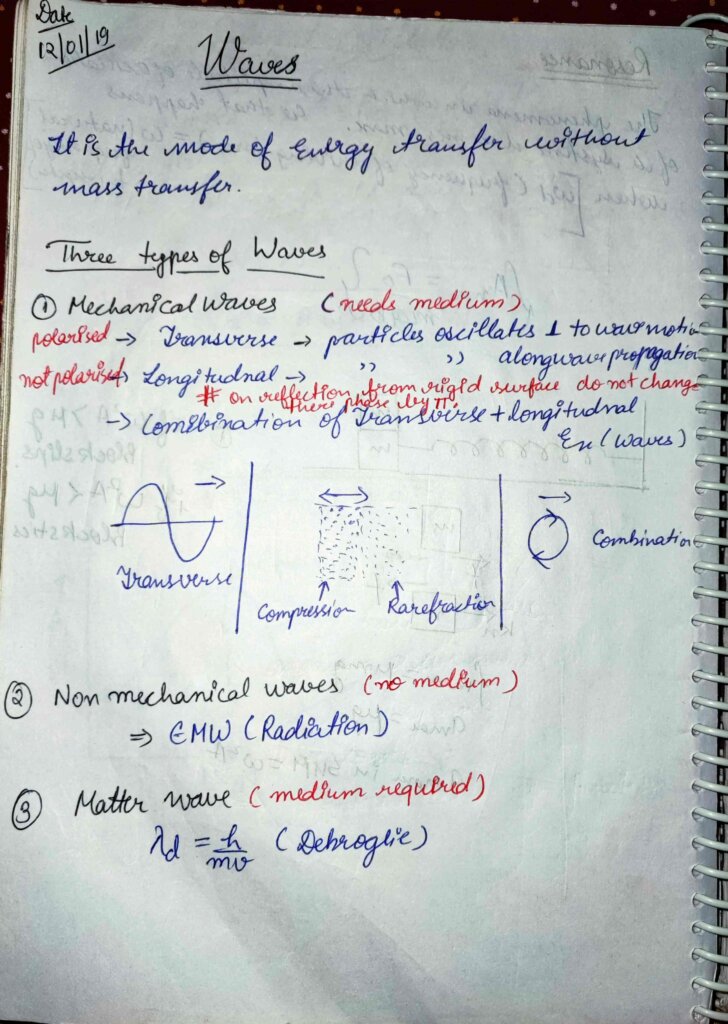 Date
12/01/19
Waves
It is the mode of energy transfer without
mass transfer.
Three types of Waves
① Mechanical waves (needs medium)
polarised → Transverse → particles oscillates ⊥ to wave motion
not polarised → Longitudnal → ,, ,, along wave propagation
# on reflection from rigid surface do not change
there phase by π.
→ Combination of Transverse + longitudnal
Ex (waves)
Transverse
Compression
Rarefraction
Combination
② Non mechanical waves (no medium)
⇒ EMW (Radiation)
③ Matter wave (medium required)
λd = h/mv (Debroglie)